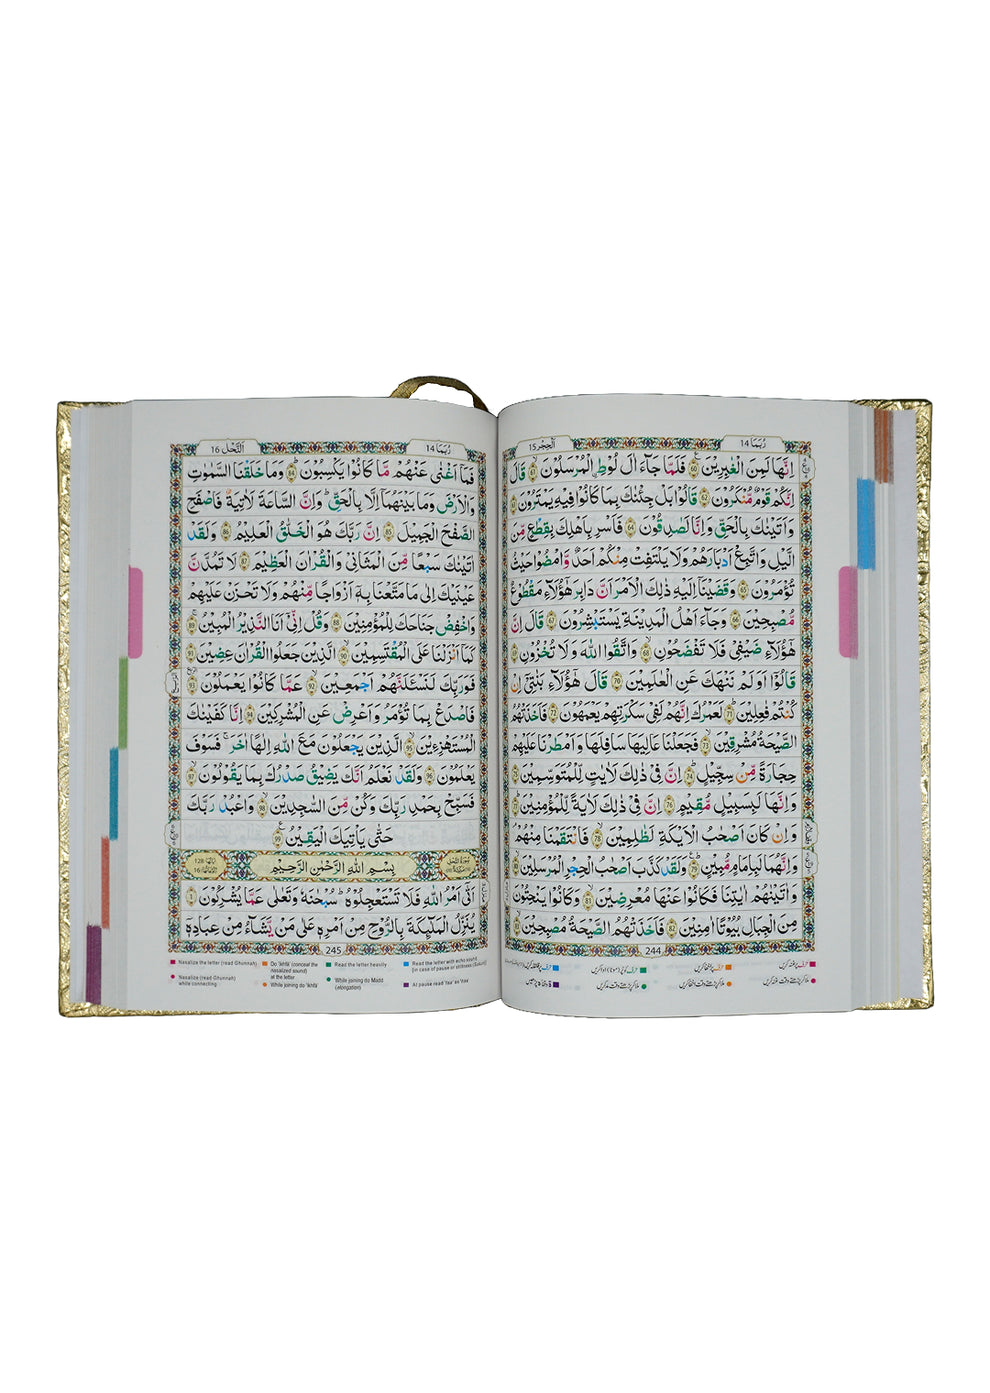 رُبَمَا 14
اَلْحِجْر 15
اِنَّهَا لَمِنَ الْغٰبِرِيْنَ 60 فَلَمَّا جَآءَ اٰلَ لُوْطِ ِۨالْمُرْسَلُوْنَ 61 قَالَ
اِنَّكُمْ قَوْمٌ مُّنْكَرُوْنَ 62 قَالُوْا بَلْ جِئْنٰكَ بِمَا كَانُوْا فِيْهِ يَمْتَرُوْنَ 63
وَاَتَيْنٰكَ بِالْحَقِّ وَاِنَّا لَصٰدِقُوْنَ 64 فَاَسْرِ بِاَهْلِكَ بِقِطْعٍ مِّنَ
الَّيْلِ وَاتَّبِعْ اَدْبَارَهُمْ وَلَا يَلْتَفِتْ مِنْكُمْ اَحَدٌ وَّامْضُوْا حَيْثُ
تُؤْمَرُوْنَ 65 وَقَضَيْنَآ اِلَيْهِ ذٰلِكَ الْاَمْرَ اَنَّ دَابِرَ هٰٓؤُلَآءِ مَقْطُوْعٌ
مُّصْبِحِيْنَ 66 وَجَآءَ اَهْلُ الْمَدِيْنَةِ يَسْتَبْشِرُوْنَ 67 قَالَ اِنَّ
هٰٓؤُلَآءِ ضَيْفِيْ فَلَا تَفْضَحُوْنِ 68 وَاتَّقُوا اللّٰهَ وَلَا تُخْزُوْنِ 69
قَالُوْٓا اَوَلَمْ نَنْهَكَ عَنِ الْعٰلَمِيْنَ 70 قَالَ هٰٓؤُلَآءِ بَنٰتِيْٓ اِنْ
كُنْتُمْ فٰعِلِيْنَ 71 لَعَمْرُكَ اِنَّهُمْ لَفِيْ سَكْرَتِهِمْ يَعْمَهُوْنَ 72 فَاَخَذَتْهُمُ
الصَّيْحَةُ مُشْرِقِيْنَ 73 فَجَعَلْنَا عَالِيَهَا سَافِلَهَا وَاَمْطَرْنَا عَلَيْهِمْ
حِجَارَةً مِّنْ سِجِّيْلٍ 74 اِنَّ فِيْ ذٰلِكَ لَاٰيٰتٍ لِّلْمُتَوَسِّمِيْنَ 75
وَاِنَّهَا لَبِسَبِيْلٍ مُّقِيْمٍ 76 اِنَّ فِيْ ذٰلِكَ لَاٰيَةً لِّلْمُؤْمِنِيْنَ 77
وَاِنْ كَانَ اَصْحٰبُ الْاَيْكَةِ لَظٰلِمِيْنَ 78 فَانْتَقَمْنَا مِنْهُمْ
وَاِنَّهُمَا لَبِاِمَامٍ مُّبِيْنٍ 79 وَلَقَدْ كَذَّبَ اَصْحٰبُ الْحِجْرِ الْمُرْسَلِيْنَ 80
وَاٰتَيْنٰهُمْ اٰيٰتِنَا فَكَانُوْا عَنْهَا مُعْرِضِيْنَ 81 وَكَانُوْا يَنْحِتُوْنَ
مِنَ الْجِبَالِ بُيُوْتًا اٰمِنِيْنَ 82 فَاَخَذَتْهُمُ الصَّيْحَةُ مُصْبِحِيْنَ 83
244
رُبَمَا 14
اَلنَّحْل 16
فَمَآ اَغْنٰى عَنْهُمْ مَّا كَانُوْا يَكْسِبُوْنَ 84 وَمَا خَلَقْنَا السَّمٰوٰتِ
وَالْاَرْضَ وَمَا بَيْنَهُمَآ اِلَّا بِالْحَقِّ وَاِنَّ السَّاعَةَ لَاٰتِيَةٌ فَاصْفَحِ
الصَّفْحَ الْجَمِيْلَ 85 اِنَّ رَبَّكَ هُوَ الْخَلّٰقُ الْعَلِيْمُ 86 وَلَقَدْ
اٰتَيْنٰكَ سَبْعًا مِّنَ الْمَثَانِيْ وَالْقُرْاٰنَ الْعَظِيْمَ 87 لَا تَمُدَّنَّ
عَيْنَيْكَ اِلٰى مَا مَتَّعْنَا بِهٖٓ اَزْوَاجًا مِّنْهُمْ وَلَا تَحْزَنْ عَلَيْهِمْ
وَاخْفِضْ جَنَاحَكَ لِلْمُؤْمِنِيْنَ 88 وَقُلْ اِنِّيْٓ اَنَا النَّذِيْرُ الْمُبِيْنُ 89
كَمَآ اَنْزَلْنَا عَلَى الْمُقْتَسِمِيْنَ 90 الَّذِيْنَ جَعَلُوا الْقُرْاٰنَ عِضِيْنَ 91
فَوَرَبِّكَ لَنَسْـَٔلَنَّهُمْ اَجْمَعِيْنَ 92 عَمَّا كَانُوْا يَعْمَلُوْنَ 93
فَاصْدَعْ بِمَا تُؤْمَرُ وَاَعْرِضْ عَنِ الْمُشْرِكِيْنَ 94 اِنَّا كَفَيْنٰكَ
الْمُسْتَهْزِءِيْنَ 95 الَّذِيْنَ يَجْعَلُوْنَ مَعَ اللّٰهِ اِلٰهًا اٰخَرَ فَسَوْفَ
يَعْلَمُوْنَ 96 وَلَقَدْ نَعْلَمُ اَنَّكَ يَضِيْقُ صَدْرُكَ بِمَا يَقُوْلُوْنَ 97
فَسَبِّحْ بِحَمْدِ رَبِّكَ وَكُنْ مِّنَ السّٰجِدِيْنَ 98 وَاعْبُدْ رَبَّكَ
حَتّٰى يَاْتِيَكَ الْيَقِيْنُ 99
بِسْمِ اللّٰهِ الرَّحْمٰنِ الرَّحِيْمِ
اَتٰٓى اَمْرُ اللّٰهِ فَلَا تَسْتَعْجِلُوْهُ سُبْحٰنَهٗ وَتَعٰلٰى عَمَّا يُشْرِكُوْنَ 1
يُنَزِّلُ الْمَلٰٓئِكَةَ بِالرُّوْحِ مِنْ اَمْرِهٖ عَلٰى مَنْ يَّشَآءُ مِنْ عِبَادِهٖٓ
245
Nasalize the letter (read Ghunnah)
Do 'Ikhfa' (conceal the nasalized sound) at the letter
Read the letter heavily
Read the letter with echo sound
Nasalize (read Ghunnah) while connecting
While joining do 'Ikhfa'
While joining do Madd (elongation)